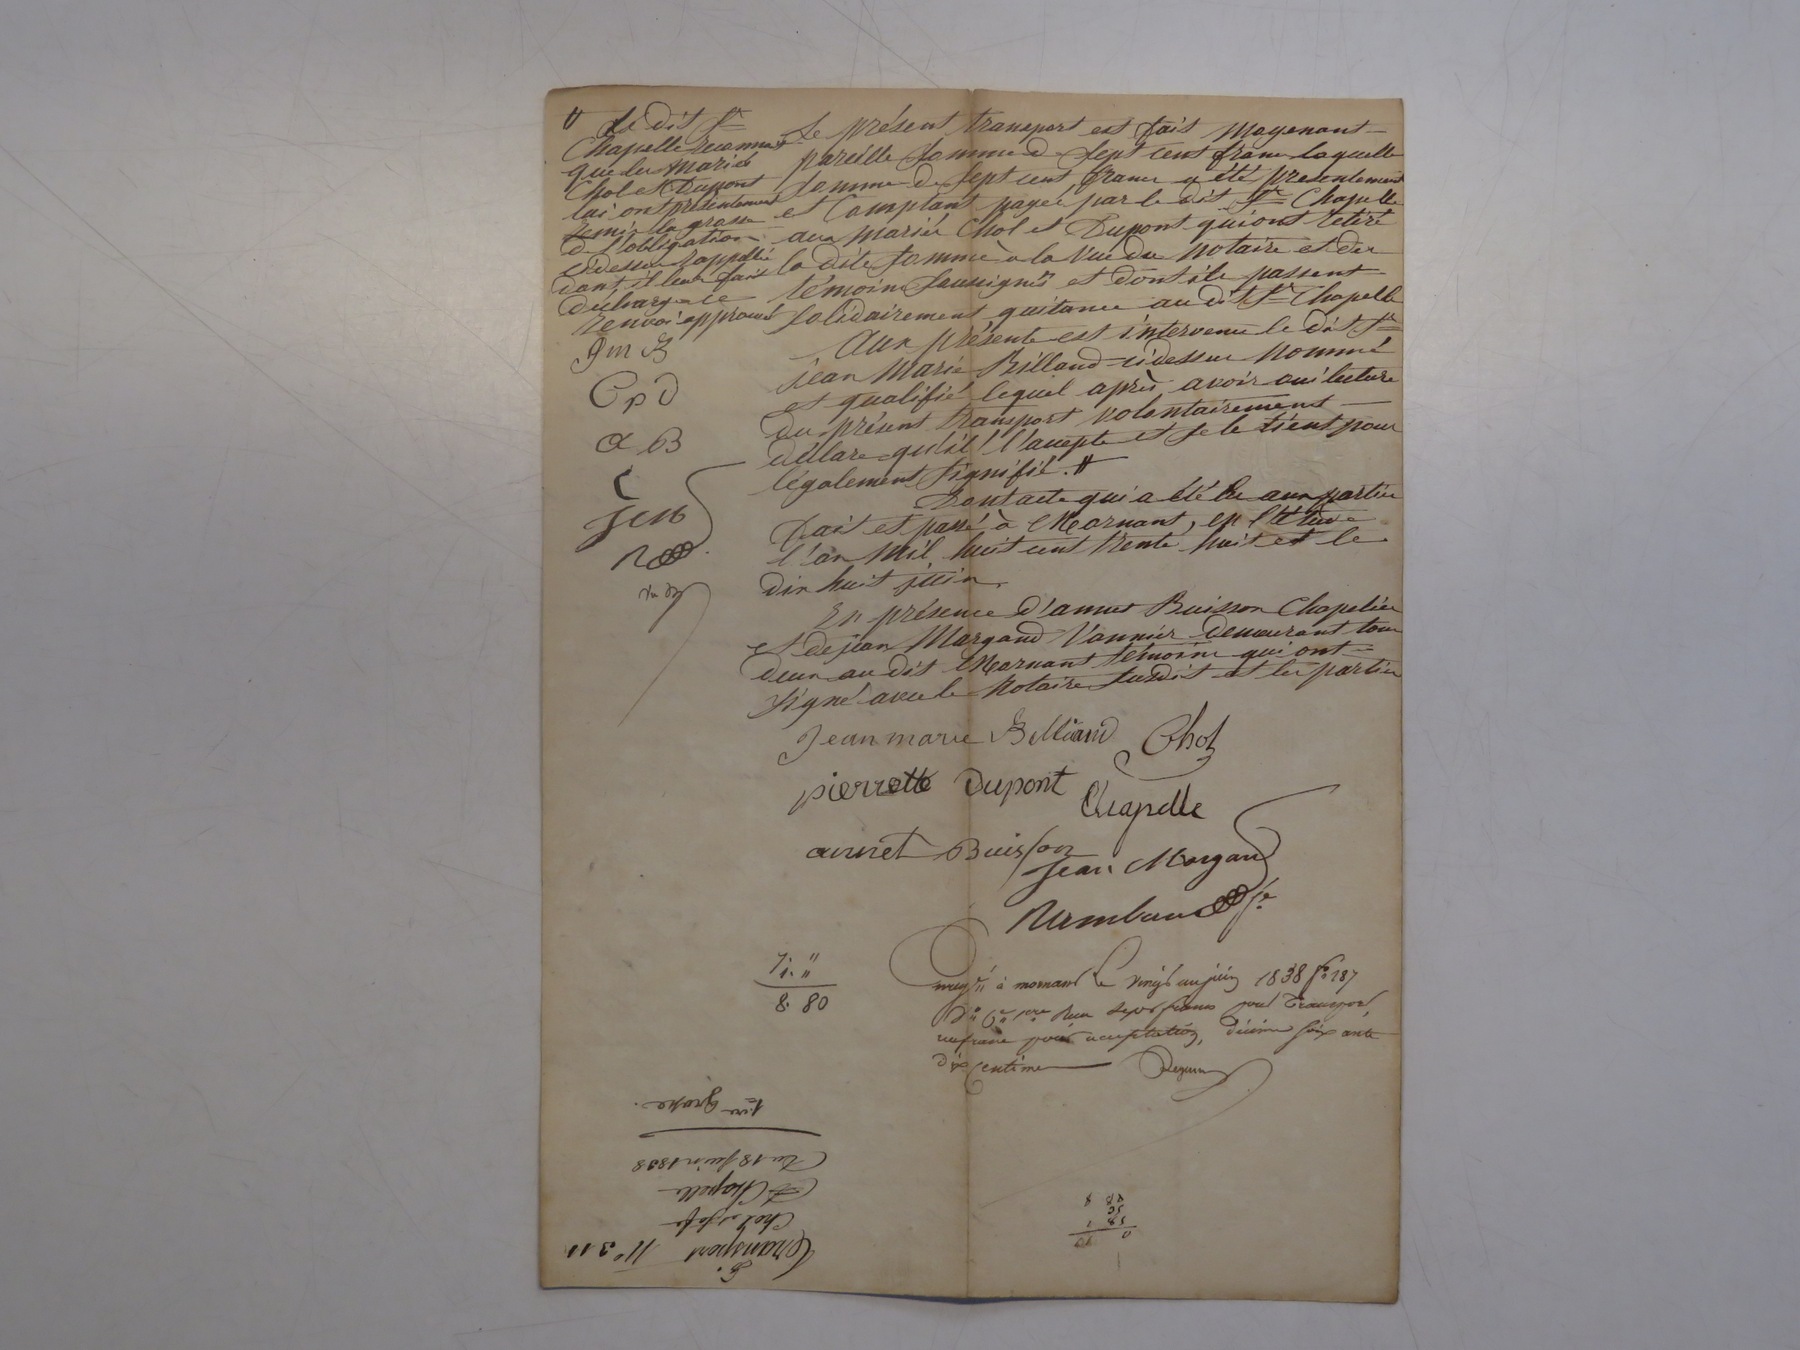 Le présent transport est fait moyenant
pareille somme de sept cent franc laquelle
somme de sept cent franc a été présentement
et comptant payée par le dit Sr Chapelle
aux mariés Chol et Dupont qui ont retiré
la dite somme à la vue du notaire et des
témoins soussignés et dont ils passent
solidairement quitance au dit Sr Chapelle
Aux présente est intervenu le dit Sr
jean Marie Billand ci dessus nommé
et qualifié lequel après avoir oui lecture
du présent transport volontairement
déclare qu'il l'accepte et se le tient pour
légalement signifié. #
Dont acte qui a été lu aux parties
fait et passé à Mornant, en l'étude
l'an mil huit cent trente huit et le
dix huit juin.
En présence d'annet Buisson Chapelier
et de jean Margand Vannier demeurant tous
deux au dit Mornant témoins qui ont
signé avec le notaire susdit et les parties
# Le dit Sr
Chapelle reconnait
que les mariés
Chol et Dupont
lui ont présentement
remis la grosse
d l'obligation
cidessus rappellée
dont il leur fait
décharge
renvoi approuvé
jm B
C p D
a B
C
jm
R
Jean marie Billiand Chol
pierrette Dupont
Chapelle
annet Buisson
Jean Margand
7. "
1. "
8. 80
Enregtré à mornant Le vingt un juin 1838 fo 187
deux sept francs pour Transport,
un franc pour acceptation, décime soix ante
dix centimes
Transport No 311
Chol et sa fe
à Chapelle
Du 18 Juin 1838
1ere Grosse.